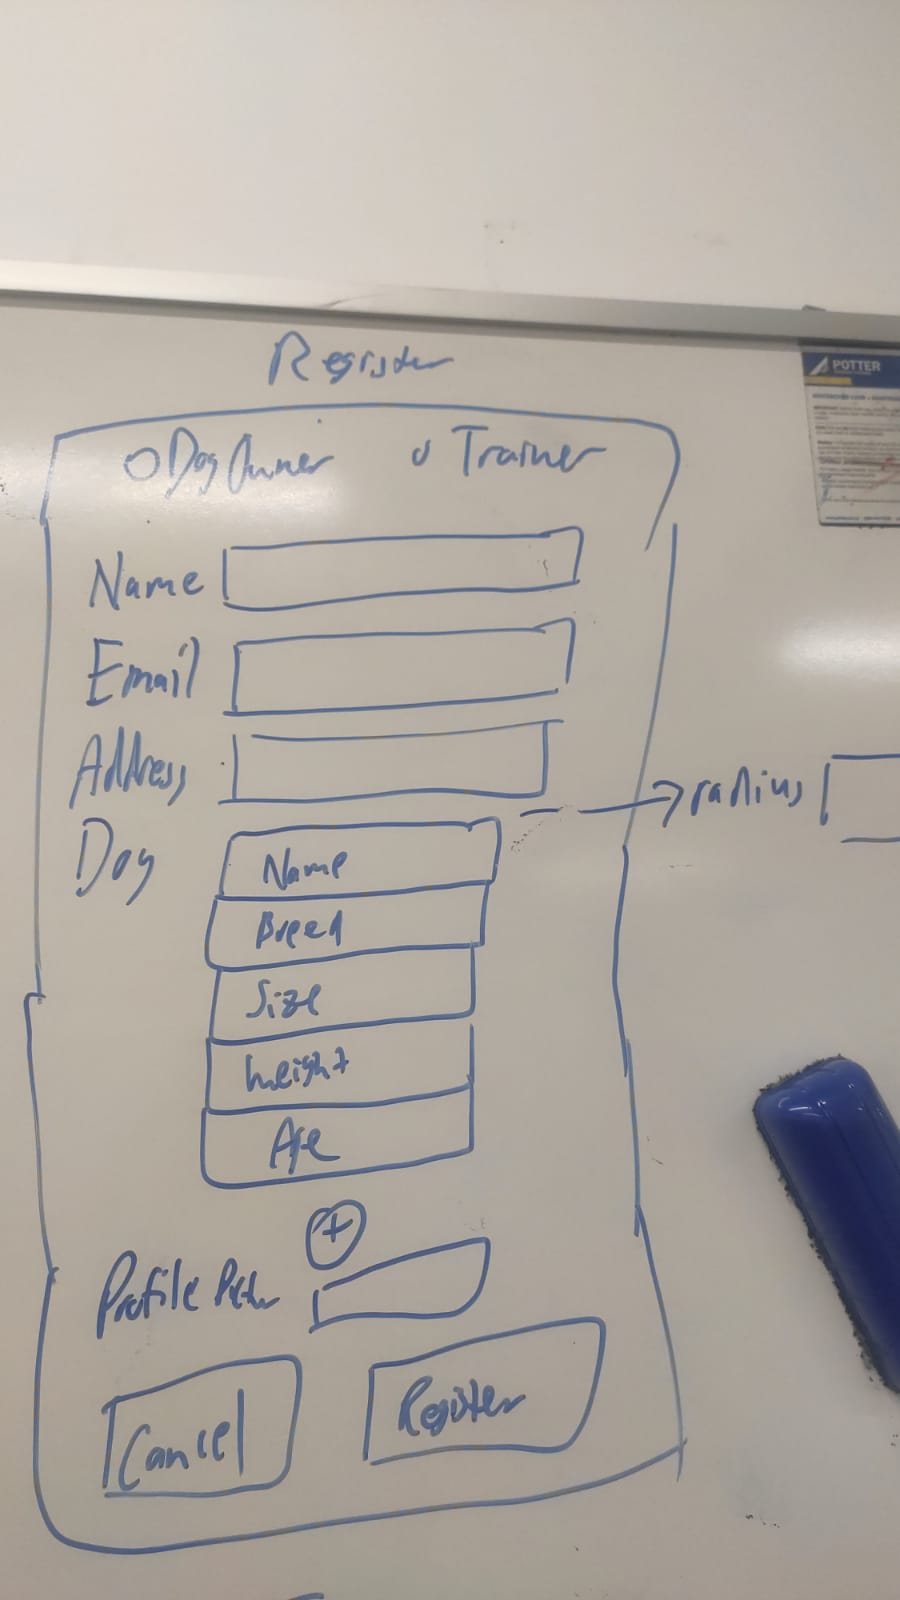 Register
Dog Owner Trainer
Name
Email
Address
radius
Dog
Name
Breed
Size
Weight
Age
+
Profile
Cancel
Register
POTTER